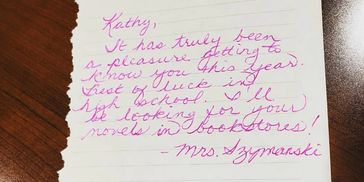 Kathy,
It has truly been
a pleasure getting to
know you this year.
Best of luck in
high school. I'll
be looking for your
novels in bookstores!
- Mrs. Szymanski